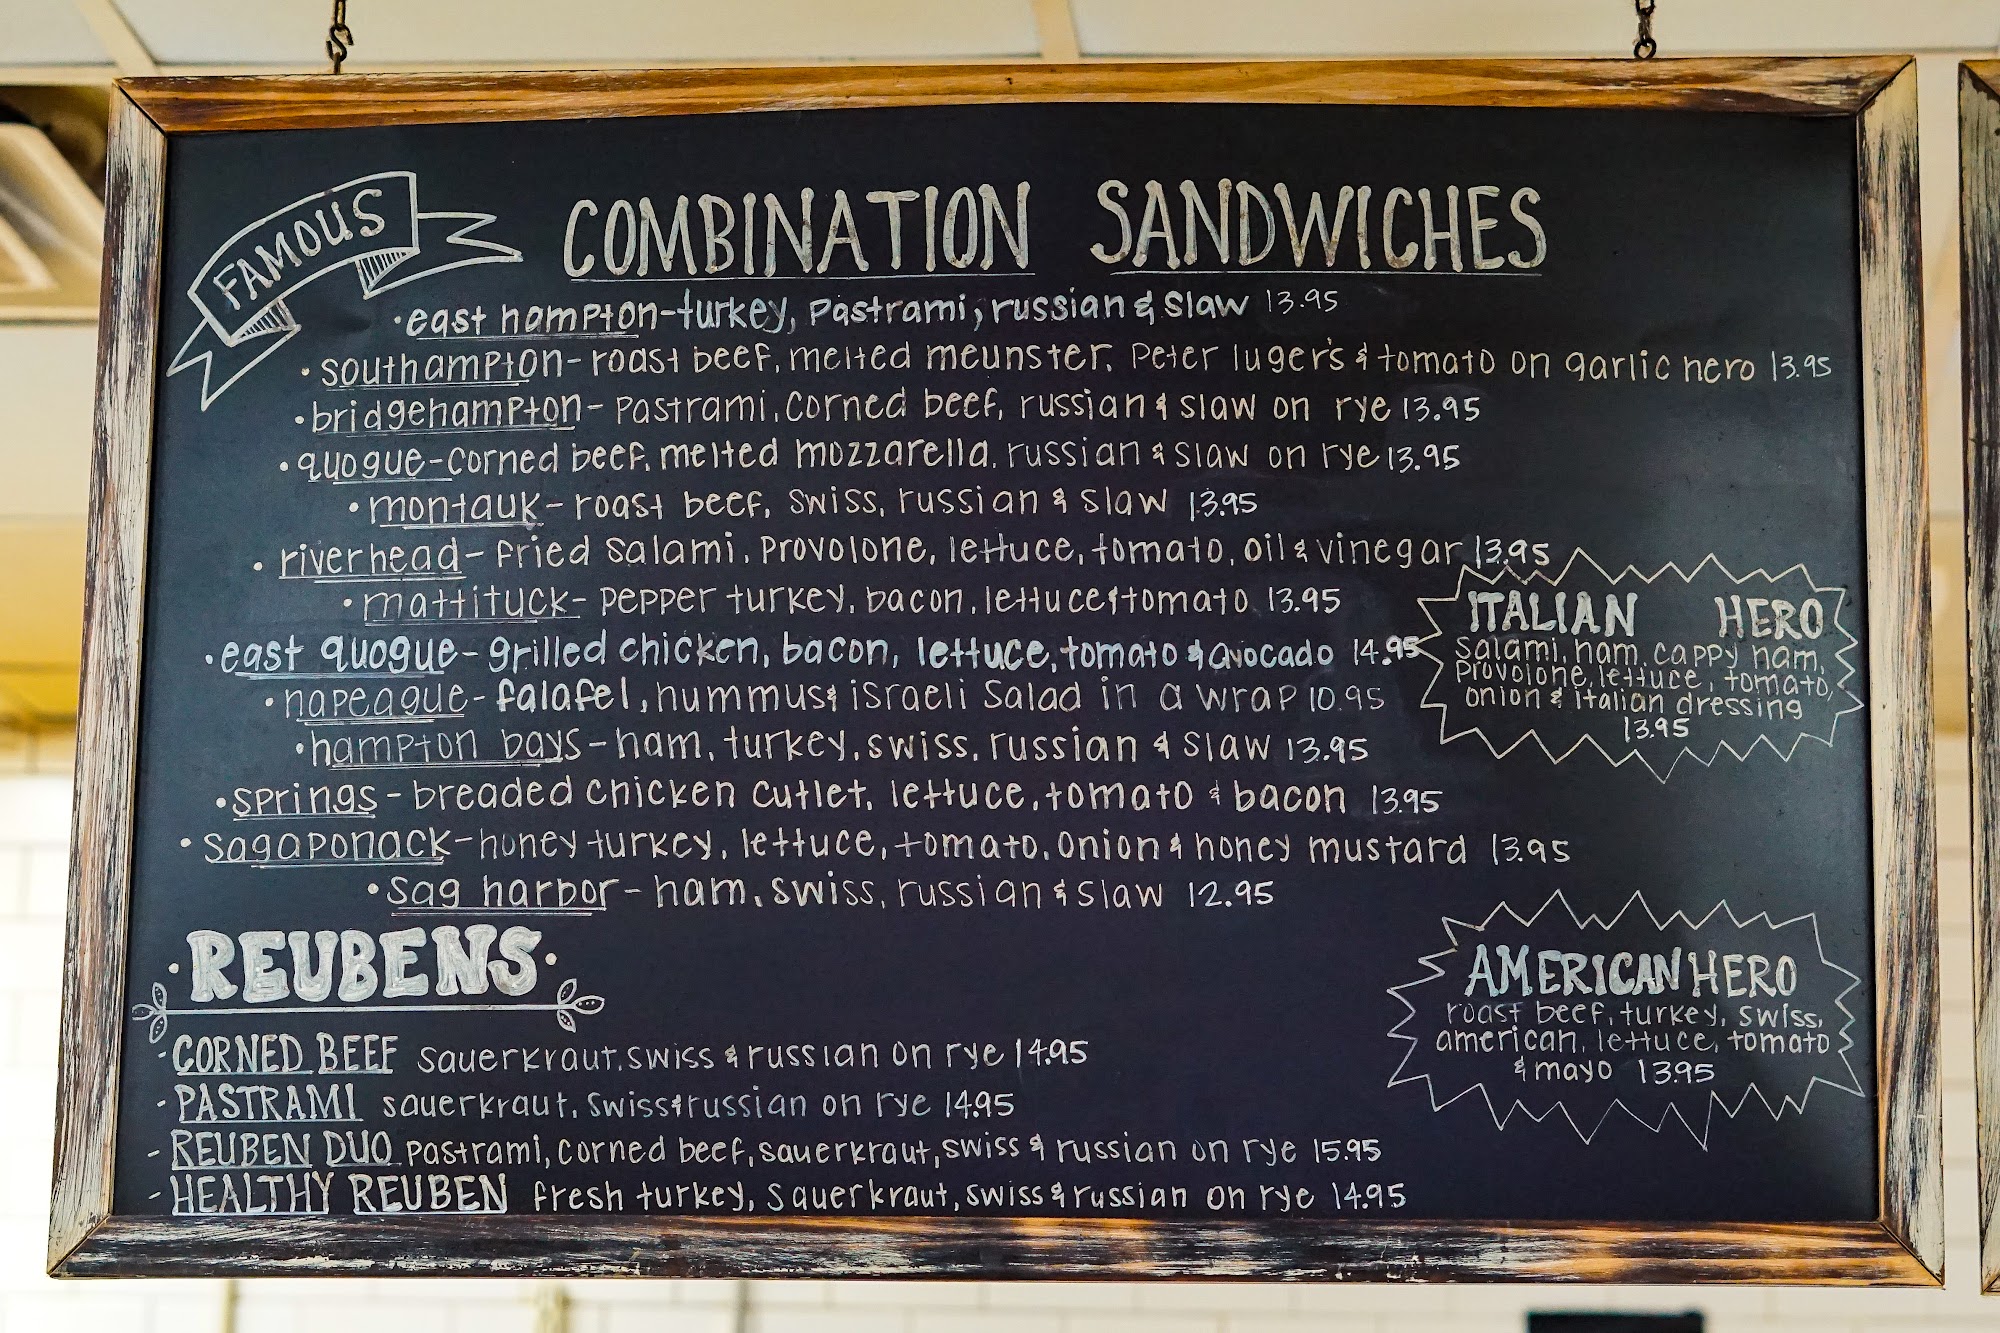 FAMOUS
COMBINATION SANDWICHES
·east hampton-turkey, pastrami, russian & slaw 13.95
·southampton-roast beef, melted meunster, peter luger's & tomato on garlic hero 13.95
·bridgehampton-pastrami, corned beef, russian & slaw on rye 13.95
·quogue-corned beef, melted mozzarella, russian & slaw on rye 13.95
·montauk-roast beef, swiss, russian & slaw 13.95
·riverhead-fried salami, provolone, lettuce, tomato, oil & vinegar 13.95
·mattituck-pepper turkey, bacon, lettuce & tomato 13.95
·east quogue-grilled chicken, bacon, lettuce, tomato & avocado 14.95
·napeague-falafel, hummus & israeli salad in a wrap 10.95
·hampton bays-ham, turkey, swiss, russian & slaw 13.95
·springs-breaded chicken cutlet, lettuce, tomato & bacon 13.95
·sagaponack-honey turkey, lettuce, tomato, onion & honey mustard 13.95
·sag harbor-ham, swiss, russian & slaw 12.95
ITALIAN HERO
salami, ham, cappy ham,
provolone, lettuce, tomato,
onion & italian dressing
13.95
·REUBENS·
-CORNED BEEF sauerkraut, swiss & russian on rye 14.95
-PASTRAMI sauerkraut, swiss & russian on rye 14.95
-REUBEN DUO pastrami, corned beef, sauerkraut, swiss & russian on rye 15.95
-HEALTHY REUBEN fresh turkey, sauerkraut, swiss & russian on rye 14.95
AMERICAN HERO
roast beef, turkey, swiss,
american, lettuce, tomato
& mayo 13.95